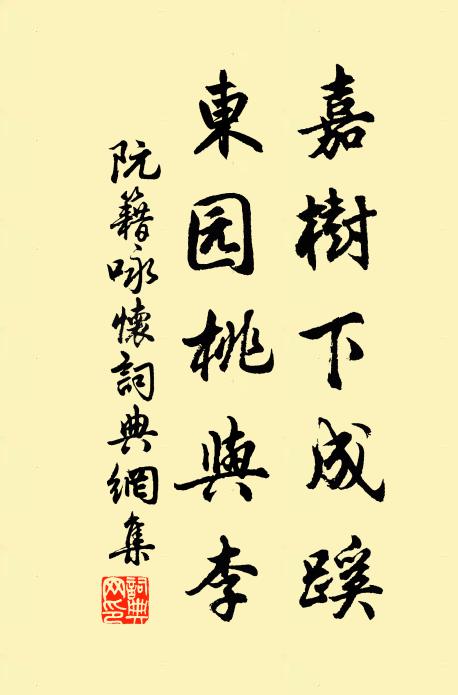 嘉樹下成蹊
東园桃與李
阮籍咏懷詞典網集
詞典网印